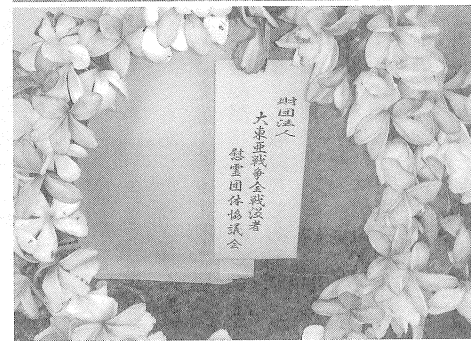 財団法人
大東亜戦争全戦没者
慰霊団体協議会